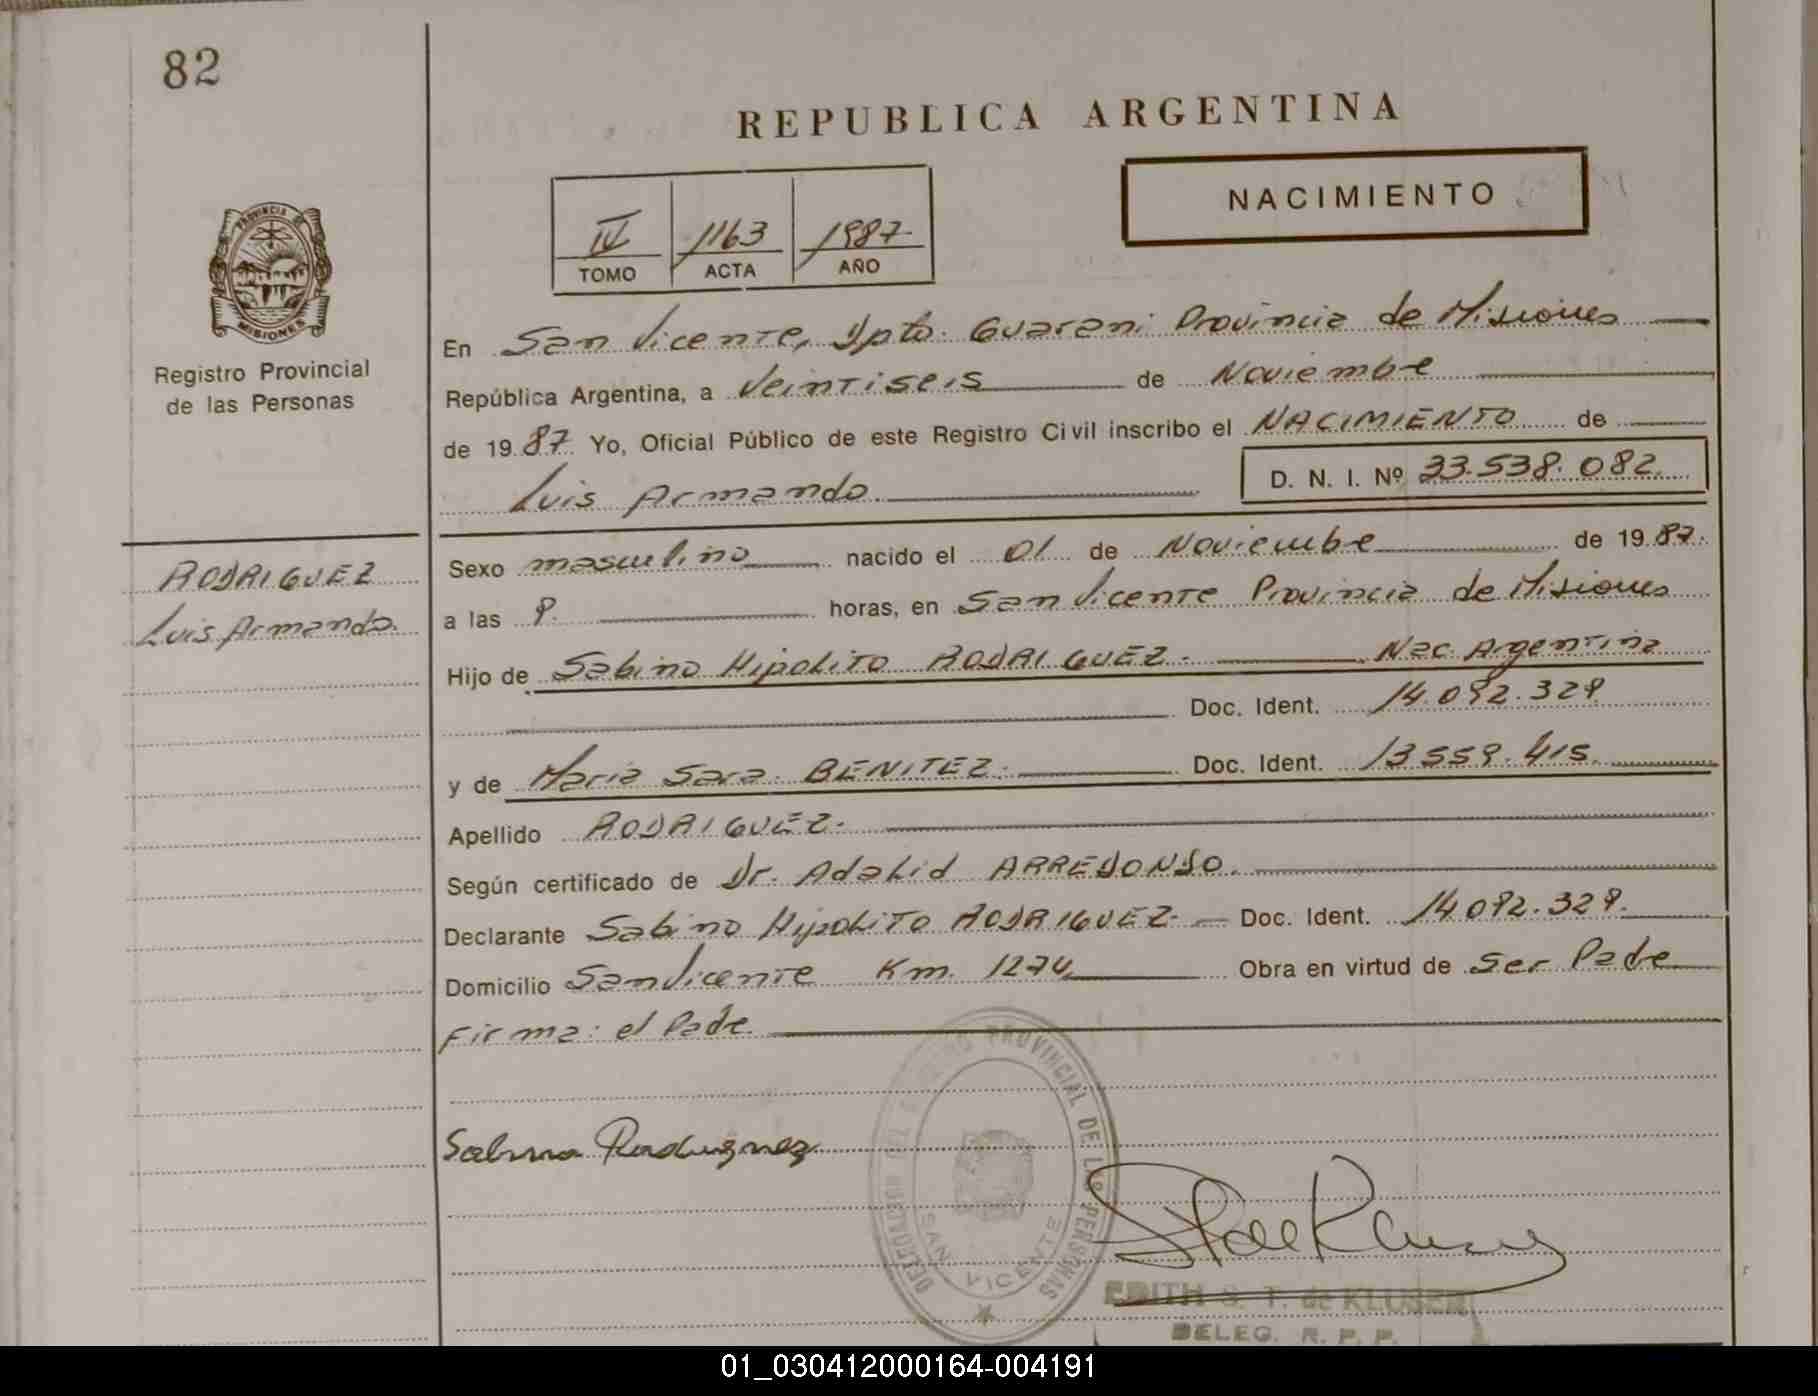 82
REPUBLICA ARGENTINA
NACIMIENTO
IV 1163 1987
TOMO ACTA AÑO
PROVINCIA DE
MISIONES
Registro Provincial
de las Personas
En San Vicente, Dpto. Guarani Provincia de Misiones
República Argentina, a Veintiseis de Noviembre
de 1987 Yo, Oficial Público de este Registro Civil inscribo el NACIMIENTO de
Luis Armando D. N. I. Nº 33.538.082.
RODRIGUEZ
Luis Armando.
Sexo masculino nacido el 01 de Noviembre de 1987.
a las 9. horas, en San Vicente Provincia de Misiones
Hijo de Sabino Hipolito RODRIGUEZ. Nac. Argentina
Doc. Ident. 14.092.329
y de Maria Sara BENITEZ. Doc. Ident. 13.559.415.
Apellido RODRIGUEZ.
Según certificado de Dr. Adalid ARREDONDO.
Declarante Sabino Hipolito RODRIGUEZ. Doc. Ident. 14.092.329.
Domicilio San Vicente Km. 1274 Obra en virtud de Ser Padre
Firma: el Padre.
PROVINCIAL DE LAS PERSONAS
SAN VICENTE
Sabino Rodriguez
EDITH S. T. de KLUSENER
DELEG. R. P. P.
01_030412000164-004191